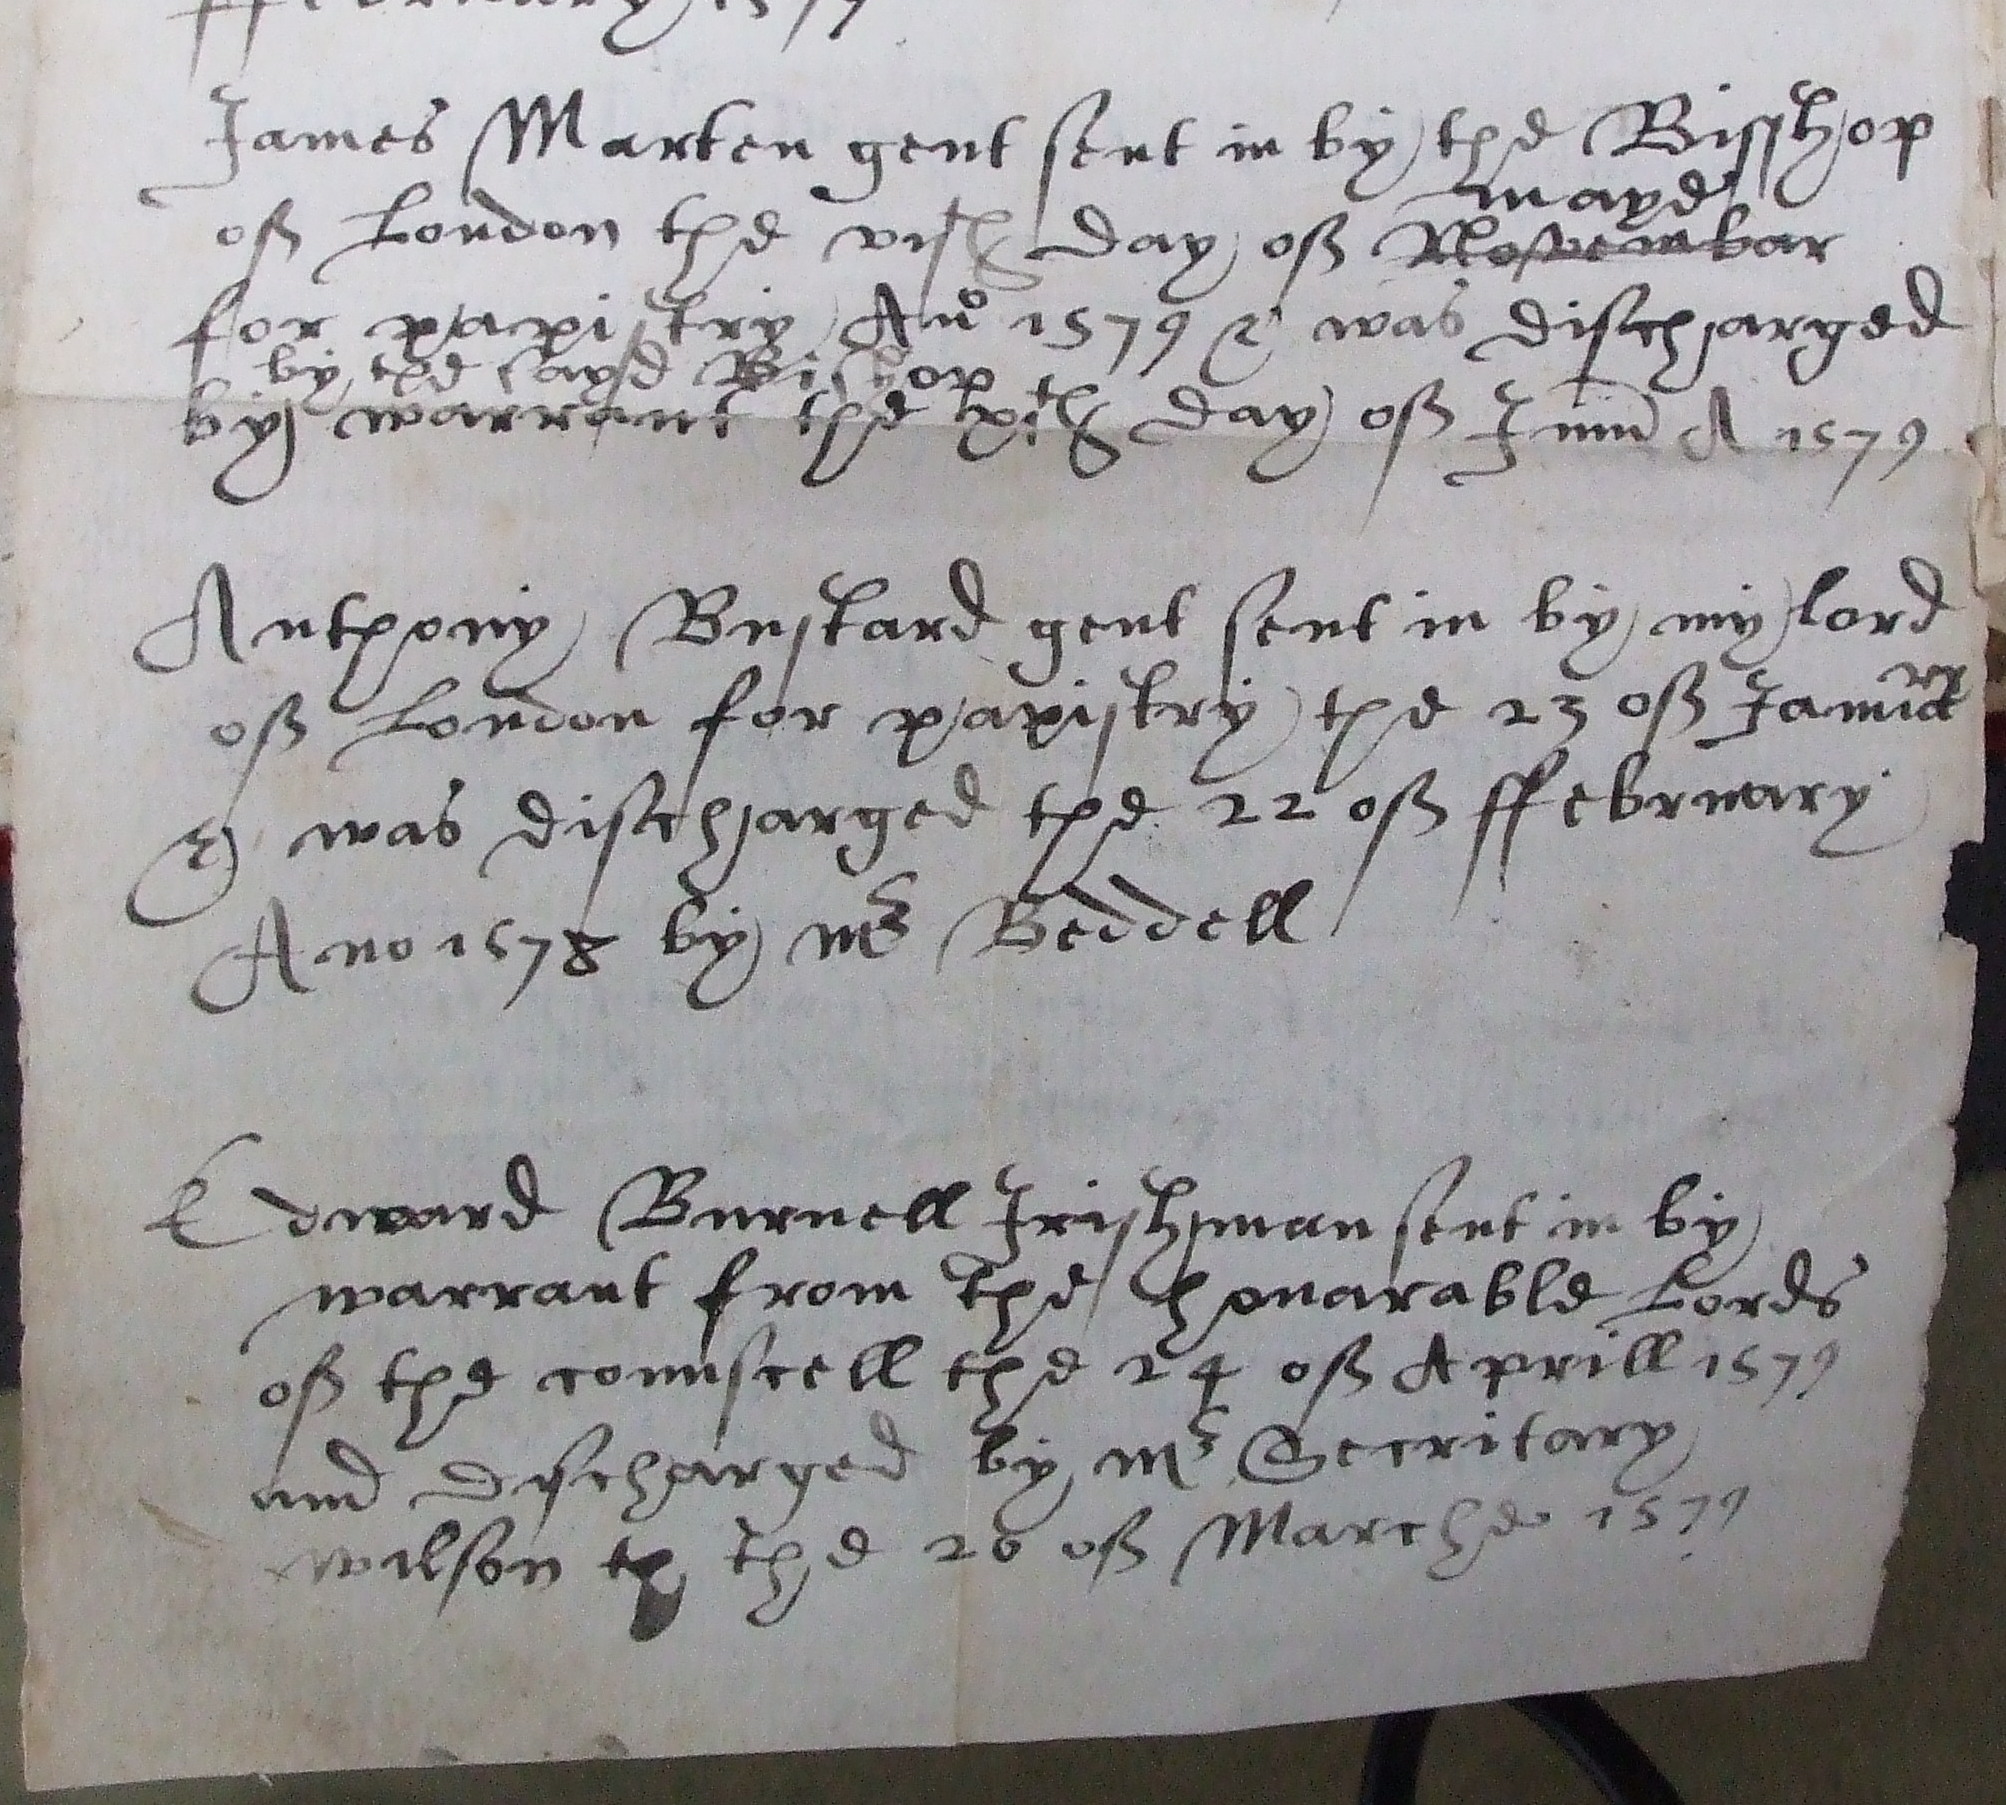 ffebruary 1579
James Marten gent sent in by the Bisshop
maye
of London the vith day of Novembar
for papistry Ano 1579 & was discharged
by the sayd Bishop
by warrant the ixth day of June A 1579
Anthony Bustard gent sent in by my lord
of London for papistry the 23 of January
& was discharged the 22 of ffebruary
Ano 1578 by mr Beddell
Edward Burnell Irishman sent in by
warrant from the honarable Lords
of the counscell the 24 of Aprill 1579
and discharged by mr Secritary
wilson the 26 of Marche 1579